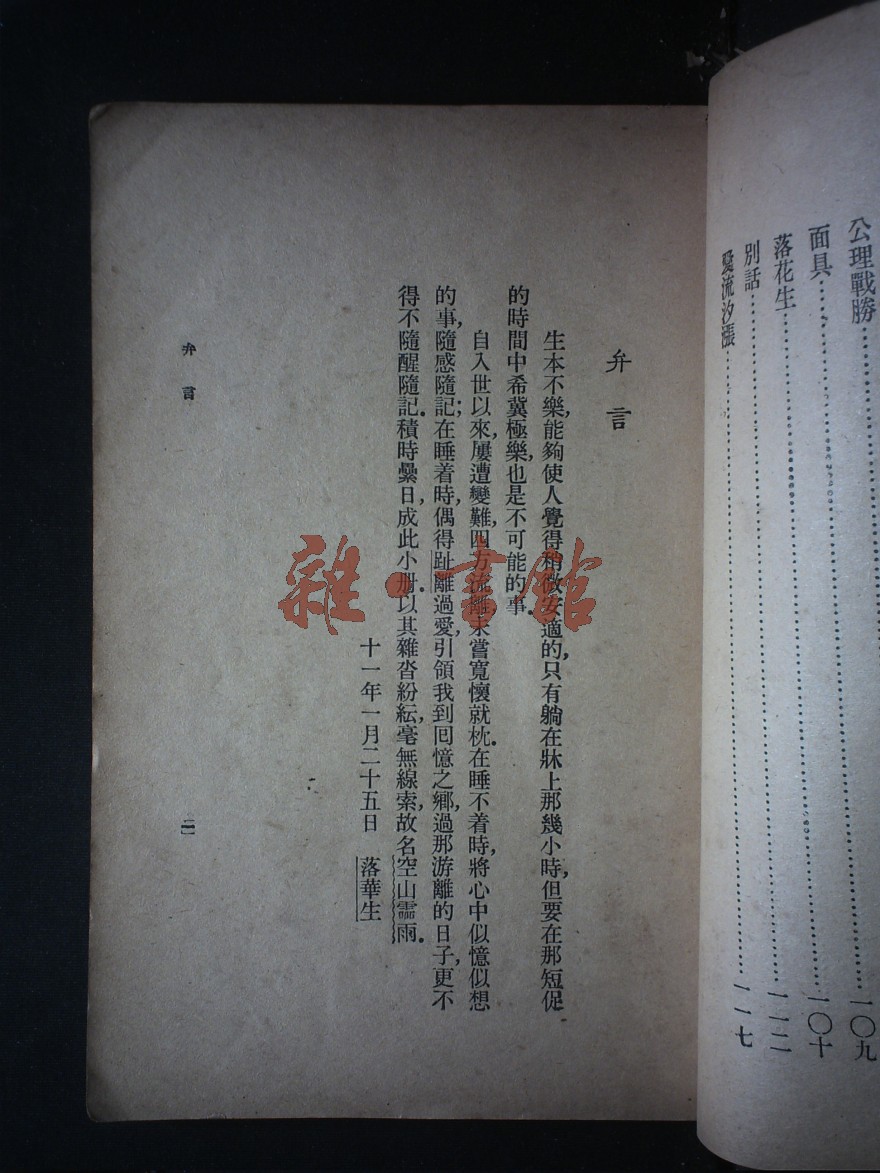 公理戰勝
面具……一〇九
落花生……一〇十
別話……一一二
愛流汐漲……一一七
弁言
生本不樂，能夠使人覺得稍微安適的，只有躺在牀上那幾小時，但要在那短促
的時間中希冀極樂，也是不可能的事。
自入世以來，屢遭變難，四方流離，未嘗寬懷就枕。在睡不着時，將心中似憶似想
的事，隨感隨記；在睡着時，偶得趾離過愛，引領我到回憶之鄉，過那游離的日子，更不
得不隨醒隨記。積時纍日，成此小册。以其雜沓紛紜，毫無線索，故名空山靈雨。
十一年一月二十五日　落華生
弁言
雜·書館